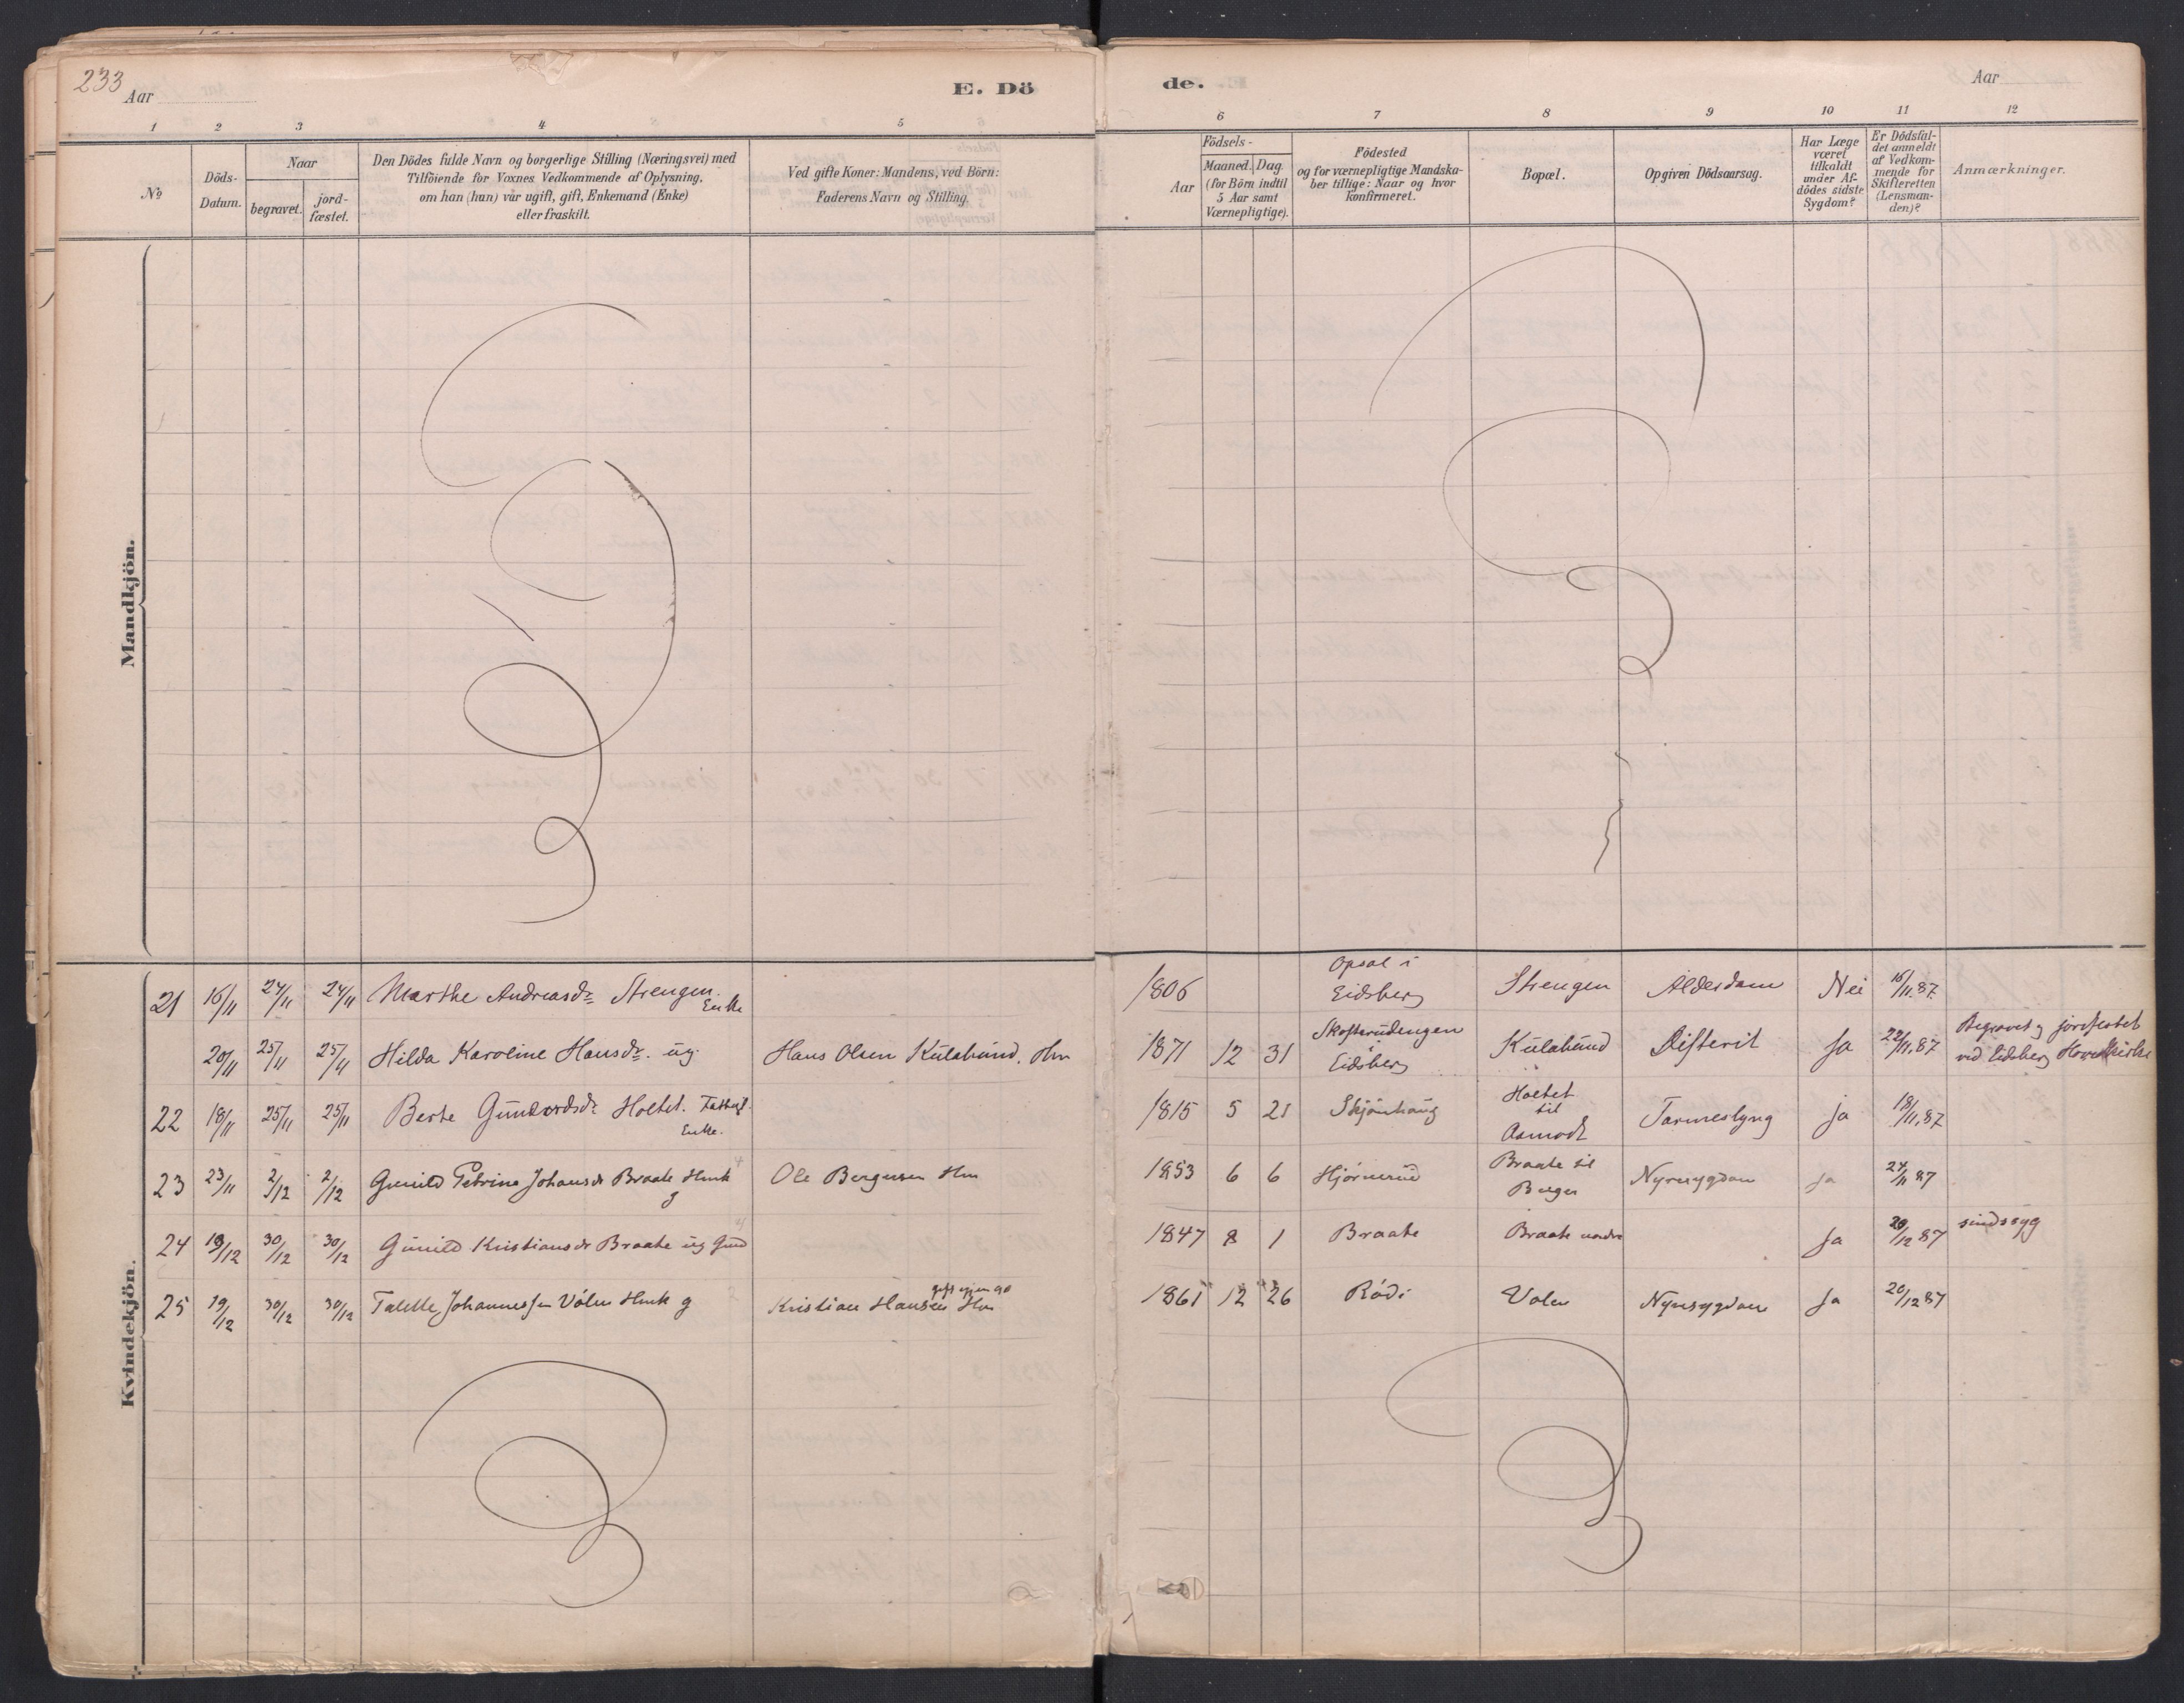 233
Aar
E. Dö
de.
Aar
1 2 3 4 5 6 7 8 9 10 11 12
No
Döds-
Datum.
Naar
begravet.
jord-
fæstet.
Den Dödes fulde Navn og borgerlige Stilling (Næringsvei) med
Tilföiende for Voxnes Vedkommende af Oplysning,
om han (hun) var ugift, gift, Enkemand (Enke)
eller fraskilt.
Ved gifte Koner: Mandens, ved Börn:
Faderens Navn og Stilling.
Födsels-
Aar
Maaned. Dag.
(for Börn indtil
5 Aar samt
Værnepligtige).
Födested
og for værnepligtige Mandska-
ber tillige: Naar og hvor
konfirmeret.
Bopæl.
Opgiven Dödsaarsag.
Har Læge
været
tilkaldt
under Af-
dödes sidste
Sygdom?
Er Dödsfal-
det anmeldt
af Vedkom-
mende for
Skifteretten
(Lensman-
den)?
Anmærkninger.
Mandkjön.
Kvindekjön.
21 16/11 24/11 24/11 Marthe Andreasdr Strengen.
Enke
1806
Opsal i
Eidsberg
Strengen Alderdom Nei 16/11.87.
20/11 25/11 25/11 Hilda Karoline Hansdr. ug. Hans Olsen Kulabund. Hm
1871 12 31
Skofterudengen
i
Eidsberg
Kulabund Difterit Ja 22/11.87
Begravet og jordfæstet
ved Eidsberg Hovedkirke
22 18/11 25/11 25/11 Berte Gundersdr Holtet. Fattigl.
Enke.
1815 5 21 Skjönhaug
Holtet
til
Aamodt
Tarmeslyng ja 18/11.87
23 23/11 2/12 2/12 Gunild Petrine Johansdr Braate Hmk
g
Ole Bergersen Hm
1853 6 6 Hjörnerud
Braate til
Berger
Nyresygdom Ja 24/11 87
24 19/12 30/12 30/12 Gunild Kristiansdr Braate ug Gmd
1847 8 1 Braate Braate nordre Ja 20/12 87 sindssyg
25 19/12 30/12 30/12 Talette Johannessen Volen Hmk g
Kristian Hansen Hm
1861 12 26 Rödi Volen Nyresygdom Ja 20/12 87